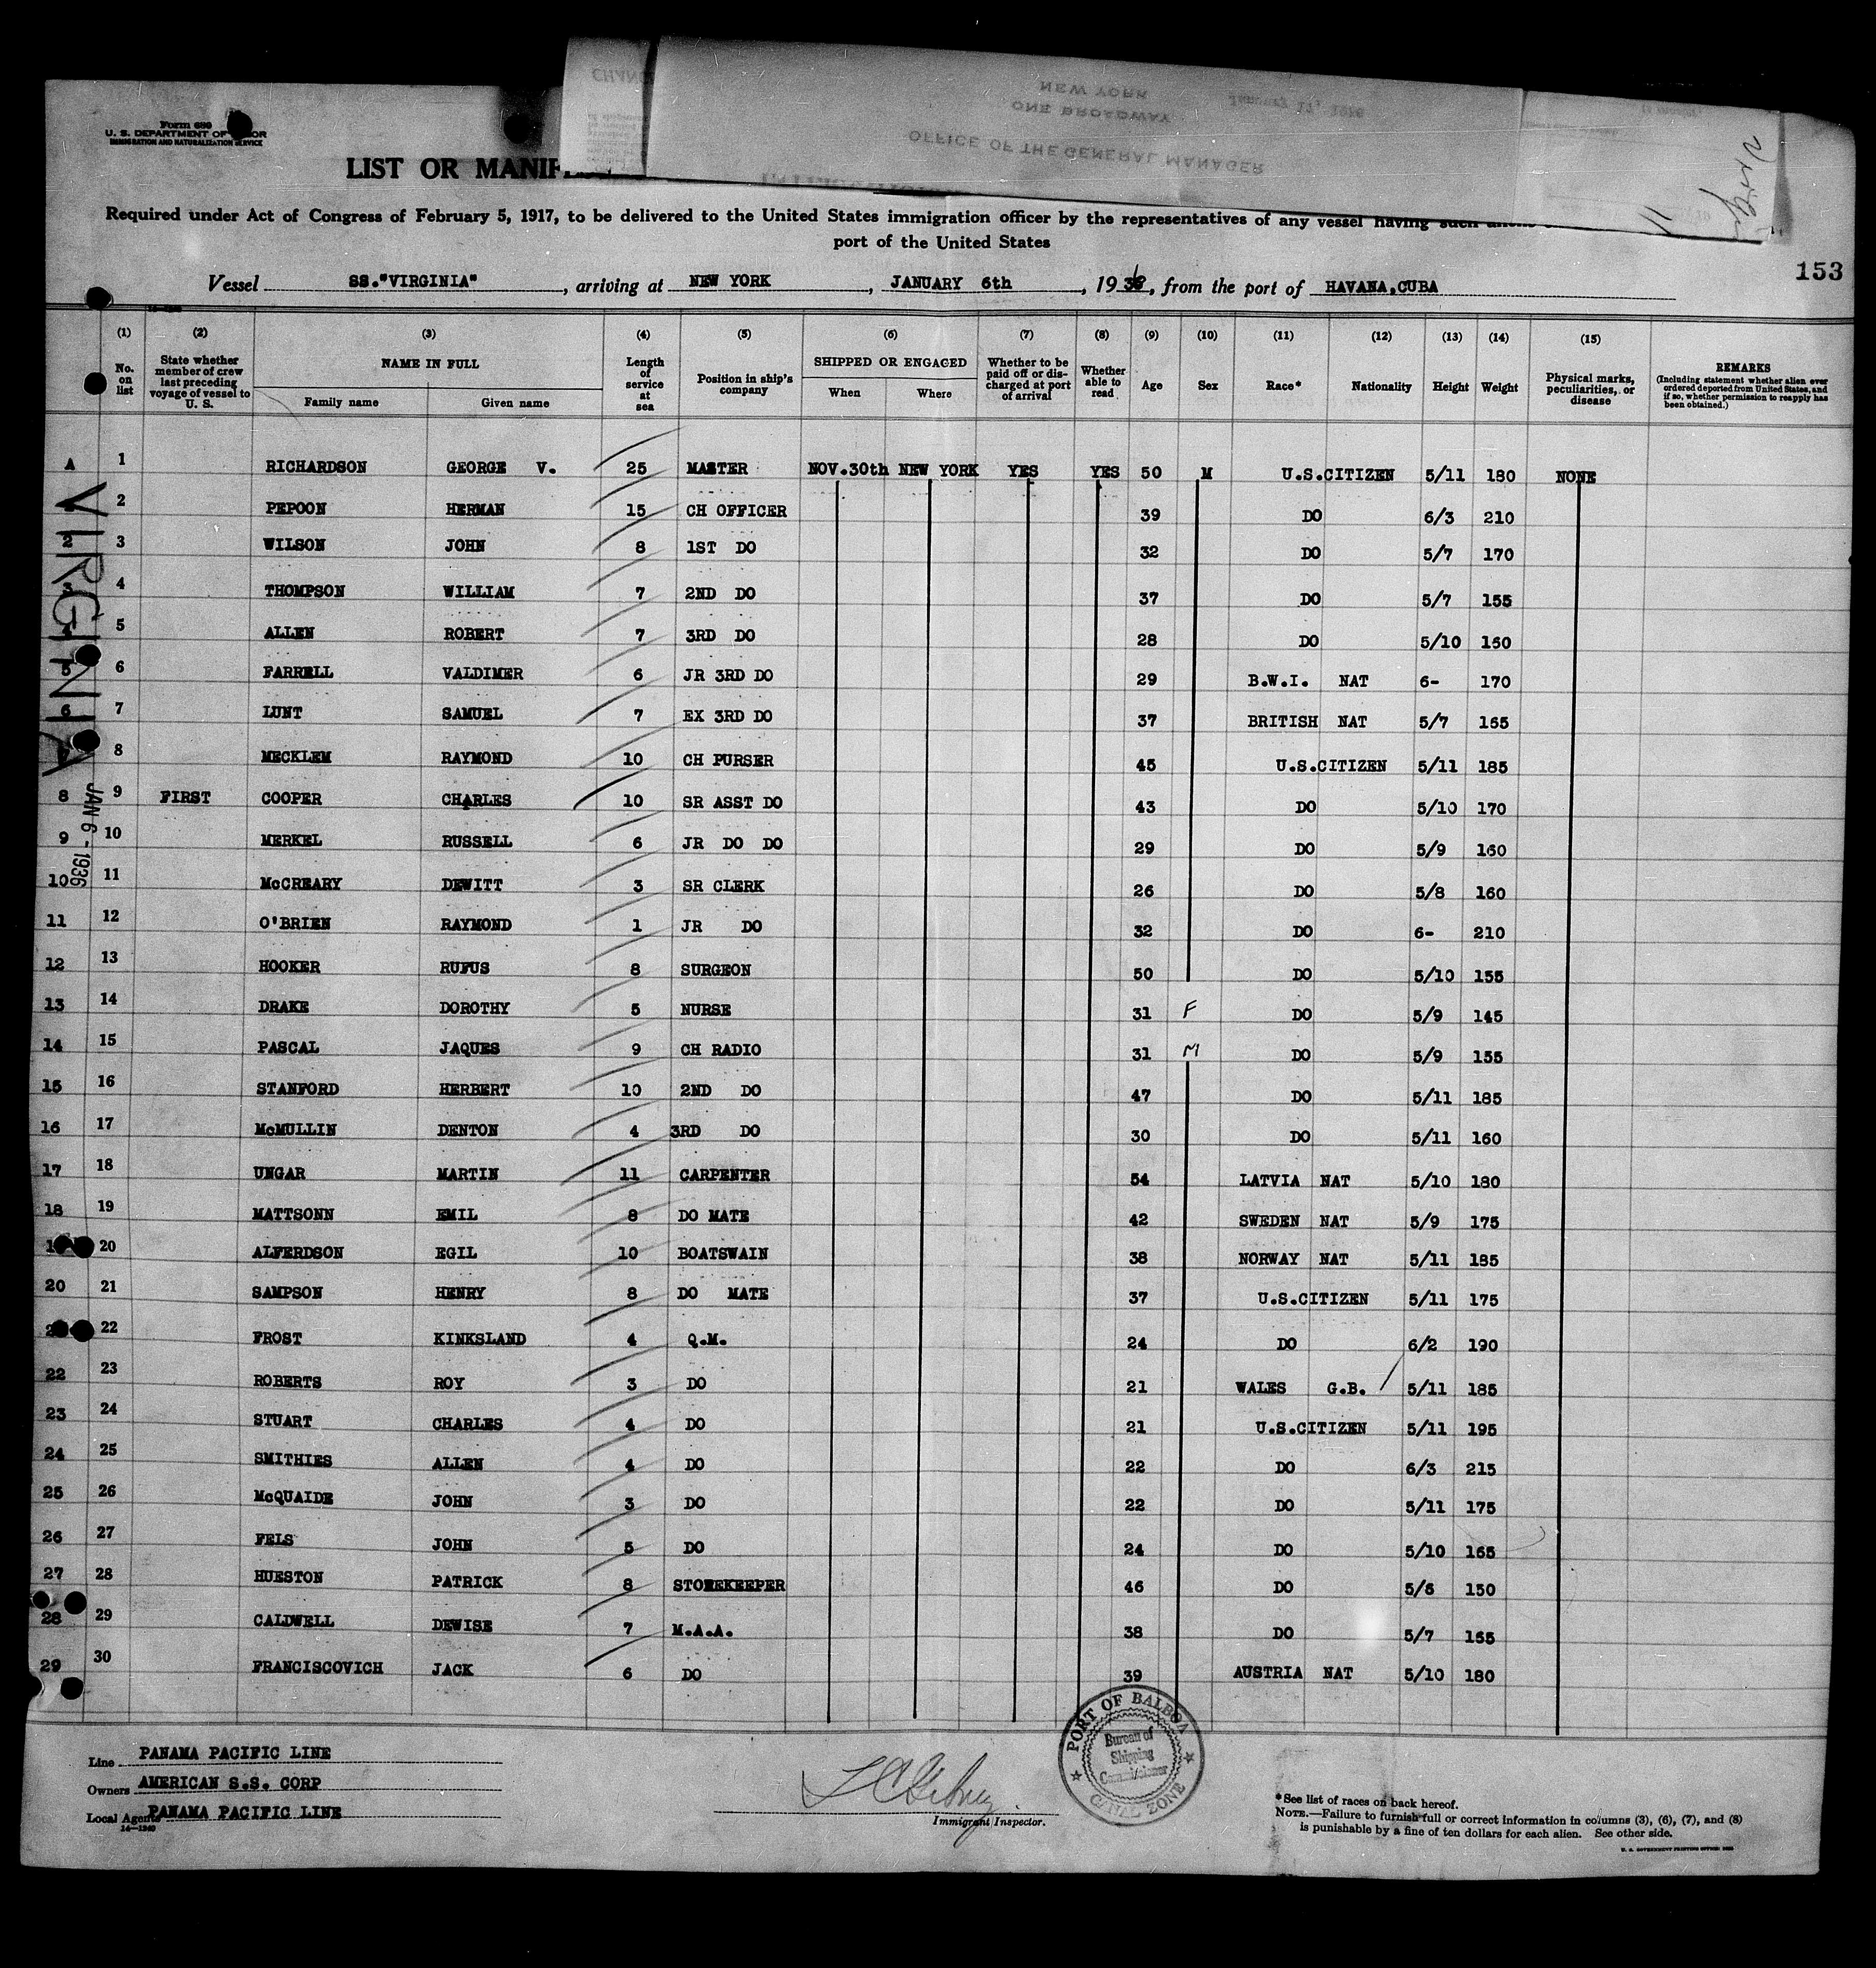 Form 680
U. S. DEPARTMENT OF
IMMIGRATION AND NATURALIZATION SERVICE
NEW YORK
ONE BROADWAY
OFFICE OF THE GENERAL MANAGER
January 17,
LIST OR
Required under Act of Congress of February 5, 1917, to be delivered to the United States immigration officer by the representatives of any vessel having such
port of the United States
153
Vessel SS."VIRGINIA", arriving at NEW YORK, JANUARY 6th, 1936, from the port of HAVANA,CUBA
(1) (2) (3) (4) (5) (6) (7) (8) (9) (10) (11) (12) (13) (14) (15)
No. on list State whether member of crew last preceding voyage of vessel to U. S. NAME IN FULL Family name Given name Length of service at sea Position in ship's company SHIPPED OR ENGAGED When Where Whether to be paid off or discharged at port of arrival Whether able to read Age Sex Race* Nationality Height Weight Physical marks, peculiarities, or disease REMARKS (Including statement whether alien ever ordered deported from United States, and if so, whether permission to reapply has been obtained.)
A 1 RICHARDSON GEORGE V. 25 MASTER NOV.30th NEW YORK YES YES 50 M U.S.CITIZEN 5/11 180 NONE
2 PEPOON HERMAN 15 CH OFFICER 39 DO 6/3 210
2 3 WILSON JOHN 8 1ST DO 32 DO 5/7 170
3 4 THOMPSON WILLIAM 7 2ND DO 37 DO 5/7 155
4 5 ALLEN ROBERT 7 3RD DO 28 DO 5/10 150
5 6 FARRELL VALDIMER 6 JR 3RD DO 29 B.W.I. NAT 6- 170
6 7 LUNT SAMUEL 7 EX 3RD DO 37 BRITISH NAT 5/7 165
7 8 MECKLEM RAYMOND 10 CH PURSER 45 U.S.CITIZEN 5/11 185
8 9 FIRST COOPER CHARLES 10 SR ASST DO 43 DO 5/10 170
9 10 MERKEL RUSSELL 6 JR DO DO 29 DO 5/9 160
10 11 McCREARY DEWITT 3 SR CLERK 26 DO 5/8 160
11 12 O'BRIEN RAYMOND 1 JR DO 32 DO 6- 210
12 13 HOOKER RUFUS 8 SURGEON 50 DO 5/10 155
13 14 DRAKE DOROTHY 5 NURSE 31 F DO 5/9 145
14 15 PASCAL JAQUES 9 CH RADIO 31 M DO 5/9 155
15 16 STANFORD HERBERT 10 2ND DO 47 DO 5/11 185
16 17 McMULLIN DENTON 4 3RD DO 30 DO 5/11 160
17 18 UNGAR MARTIN 11 CARPENTER 54 LATVIA NAT 5/10 180
18 19 MATTSONN EMIL 8 DO MATE 42 SWEDEN NAT 5/9 175
20 ALFERDSON EGIL 10 BOATSWAIN 38 NORWAY NAT 5/11 185
20 21 SAMPSON HENRY 8 DO MATE 37 U.S.CITIZEN 5/11 175
22 FROST KINKSLAND 4 Q.M. 24 DO 6/2 190
22 23 ROBERTS ROY 3 DO 21 WALES G.B. 5/11 185
23 24 STUART CHARLES 4 DO 21 U.S.CITIZEN 5/11 195
24 25 SMITHIES ALLEN 4 DO 22 DO 6/3 215
25 26 McQUAIDE JOHN 3 DO 22 DO 5/11 175
26 27 FELS JOHN 5 DO 24 DO 5/10 165
27 28 HUESTON PATRICK 8 STOREKEEPER 46 DO 5/6 150
28 29 CALDWELL DEWISE 7 M.A.A. 38 DO 5/7 155
29 30 FRANCISCOVICH JACK 6 DO 39 AUSTRIA NAT 5/10 180
VIRGINIA
JAN 6 - 1936
Line PANAMA PACIFIC LINE
Owners AMERICAN S.S. CORP
Local Agents PANAMA PACIFIC LINE
14-1240
Immigrant Inspector.
PORT OF BALBOA
Bureau of
Shipping
Commissioner
CANAL ZONE
*See list of races on back hereof.
NOTE.—Failure to furnish full or correct information in columns (3), (6), (7), and (8)
is punishable by a fine of ten dollars for each alien. See other side.